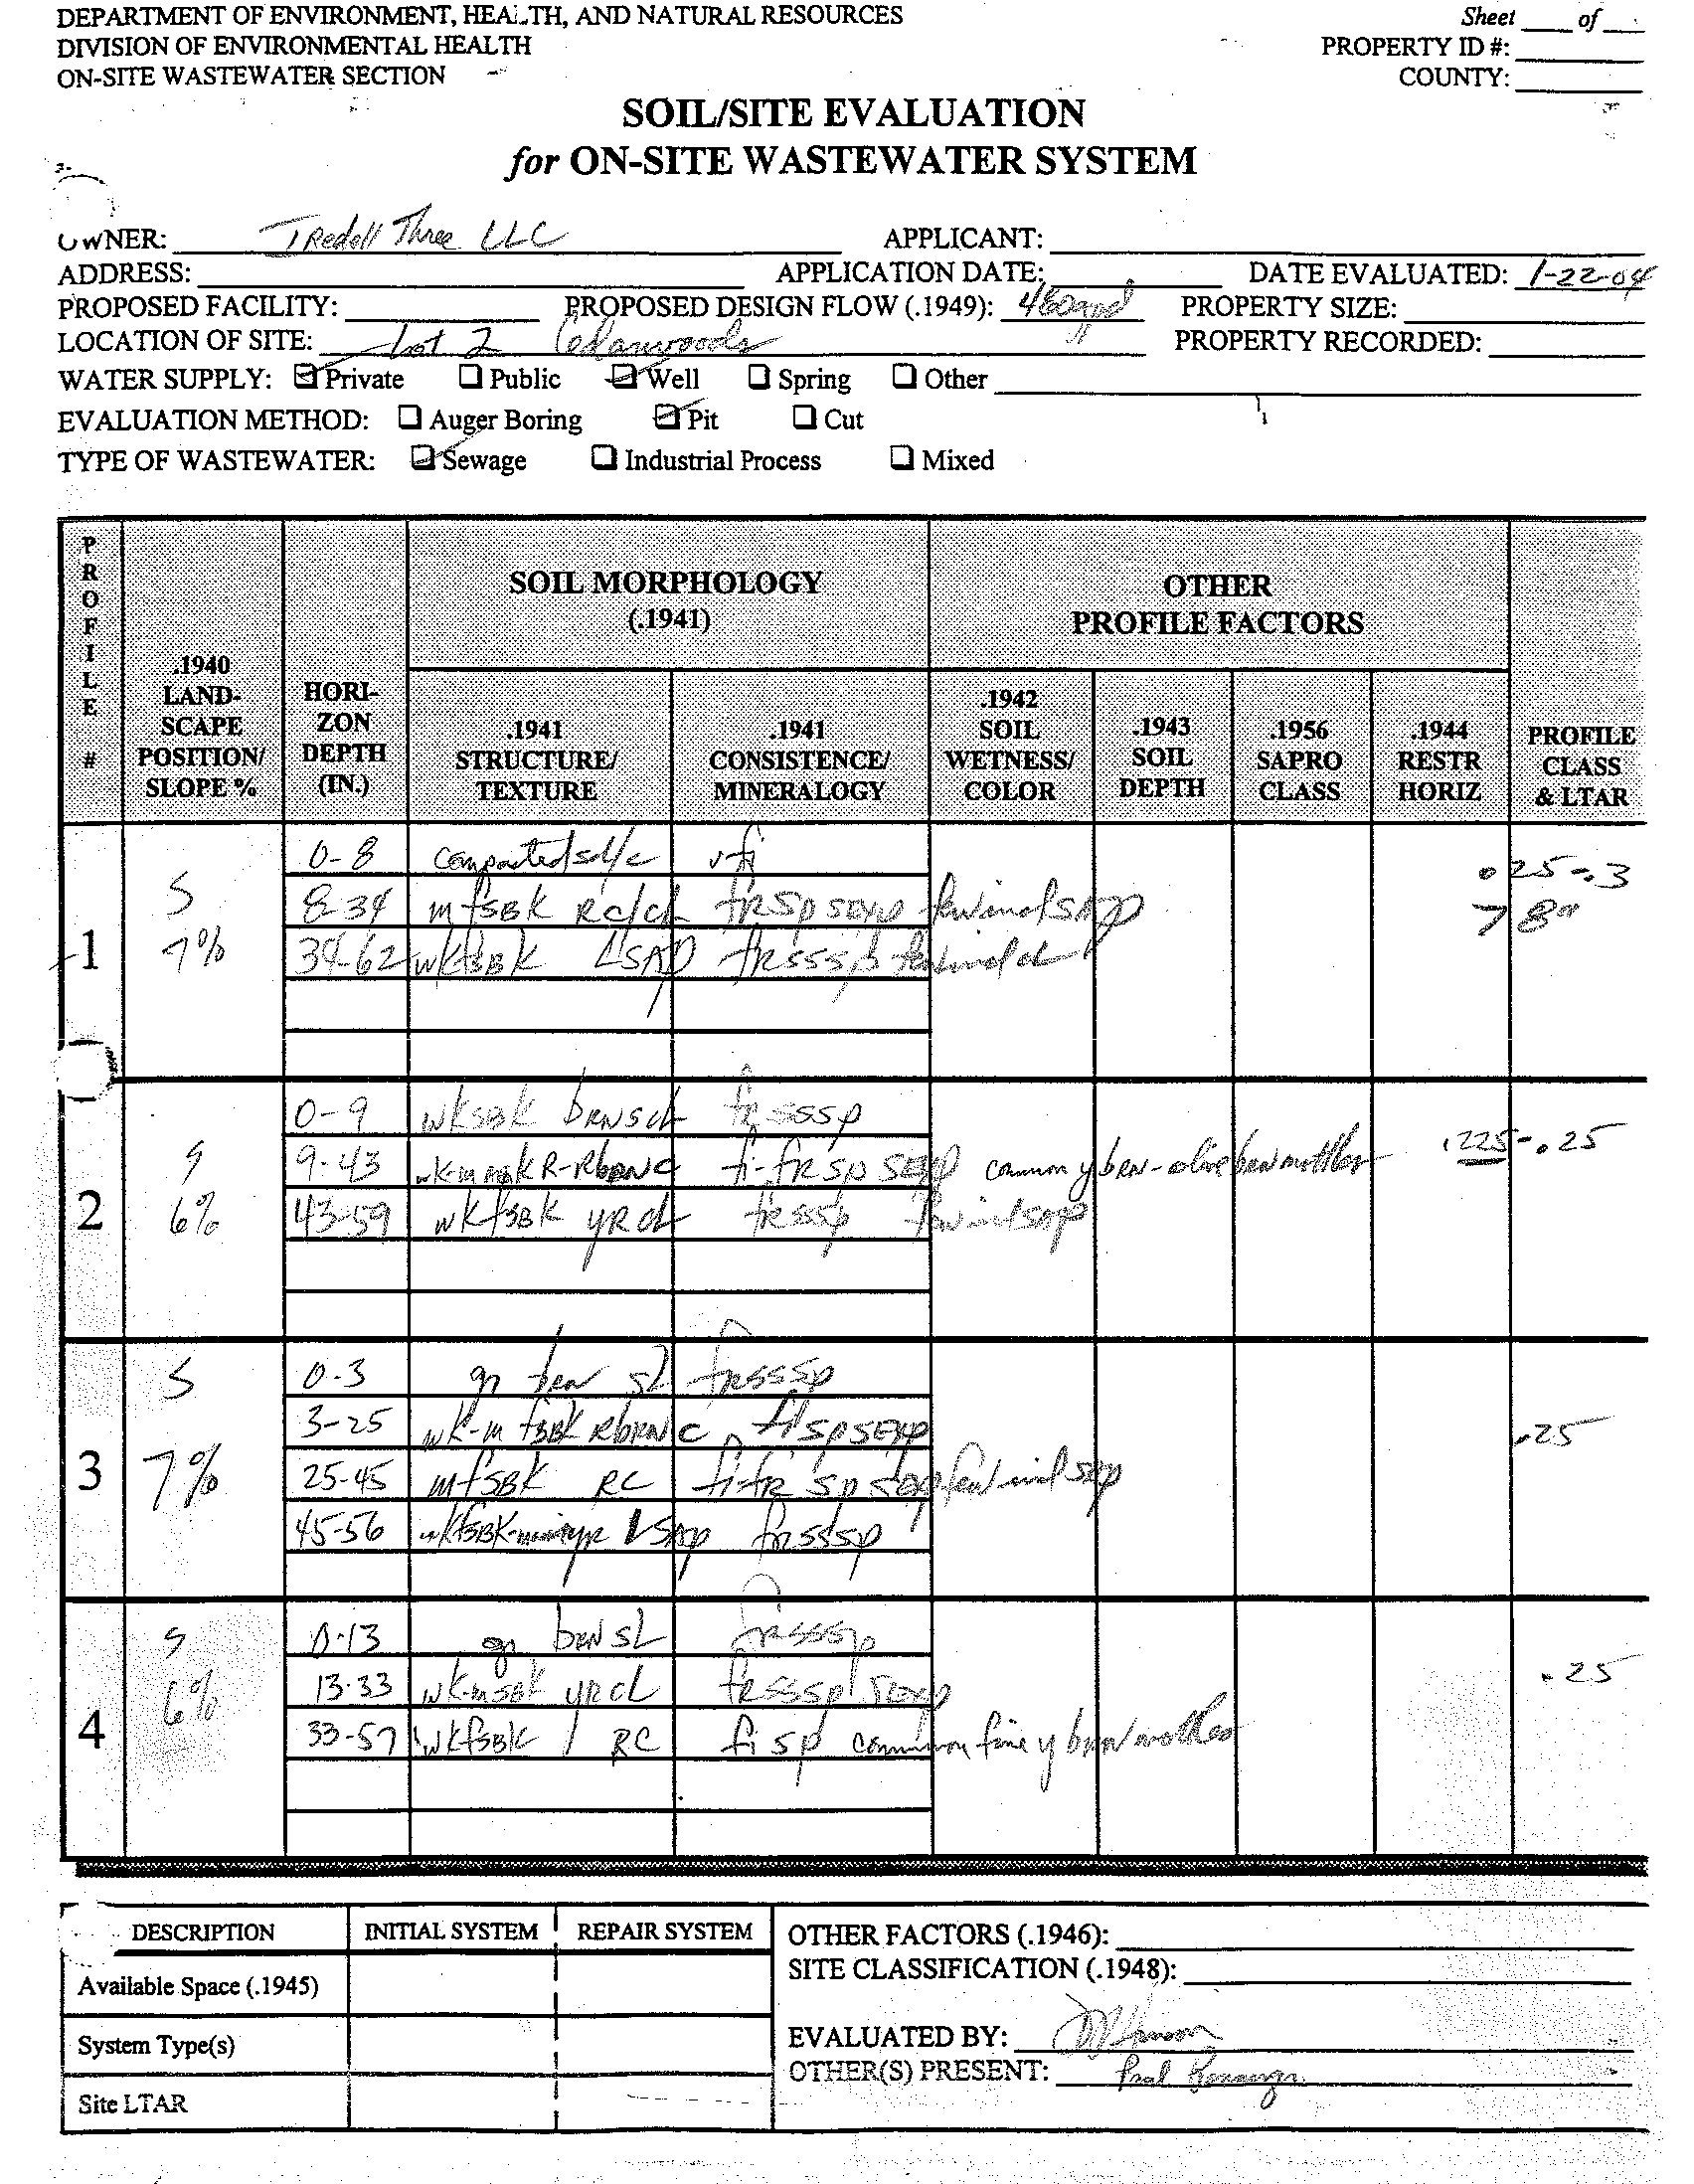 DEPARTMENT OF ENVIRONMENT, HEALTH, AND NATURAL RESOURCES
DIVISION OF ENVIRONMENTAL HEALTH
ON-SITE WASTEWATER SECTION
Sheet ___ of ___
PROPERTY ID #:
COUNTY:
SOIL/SITE EVALUATION
for ON-SITE WASTEWATER SYSTEM
OWNER: IRedell Three LLC APPLICANT:
ADDRESS: APPLICATION DATE: DATE EVALUATED: 1-22-04
PROPOSED FACILITY: PROPOSED DESIGN FLOW (.1949): PROPERTY SIZE:
LOCATION OF SITE: Lot 2 Cedarwoods PROPERTY RECORDED:
WATER SUPPLY: ☑ Private ☐ Public ☑ Well ☐ Spring ☐ Other
EVALUATION METHOD: ☐ Auger Boring ☑ Pit ☐ Cut
TYPE OF WASTEWATER: ☑ Sewage ☐ Industrial Process ☐ Mixed
PROFILE #
.1940 LAND-SCAPE POSITION/ SLOPE %
HORI-ZON DEPTH (IN.)
SOIL MORPHOLOGY (.1941)
OTHER PROFILE FACTORS
.1941 STRUCTURE/ TEXTURE
.1941 CONSISTENCE/ MINERALOGY
.1942 SOIL WETNESS/ COLOR
.1943 SOIL DEPTH
.1956 SAPRO CLASS
.1944 RESTR HORIZ
PROFILE CLASS & LTAR
1
S
7%
0-8 compacted vfi
8-34 mfSBK Rc/cL fRSp SEXP few incl SAP
34-62 wkfSBK LSAP fRsssp
.25-.3
> 8"
2
S
6%
0-9 wkSBK bRN scL fR sssp
9-43 R-RbRNC fi-fR sp SEXP common y bRN-olive bRN mottles
43-59 wkfSBK yR cL fR sssp few incl sap
.225-.25
3
S
7%
0-3 gr bRN sL fRsssp
3-25 wk-m fSBK RbRN C fi sp SEXP
25-45 mfSBK RC fi-fR sp SEXP few incl sap
45-56 LSap fRsssp
.25
4
S
6%
0-13 gr bRN SL fRsssp
13-33 wk-mSBK yR cL fRsssp SEXP
33-57 wkfSBK / RC fi sp common fine y bRN mottles
.25
DESCRIPTION INITIAL SYSTEM REPAIR SYSTEM
Available Space (.1945)
System Type(s)
Site LTAR
OTHER FACTORS (.1946):
SITE CLASSIFICATION (.1948):
EVALUATED BY:
OTHER(S) PRESENT: